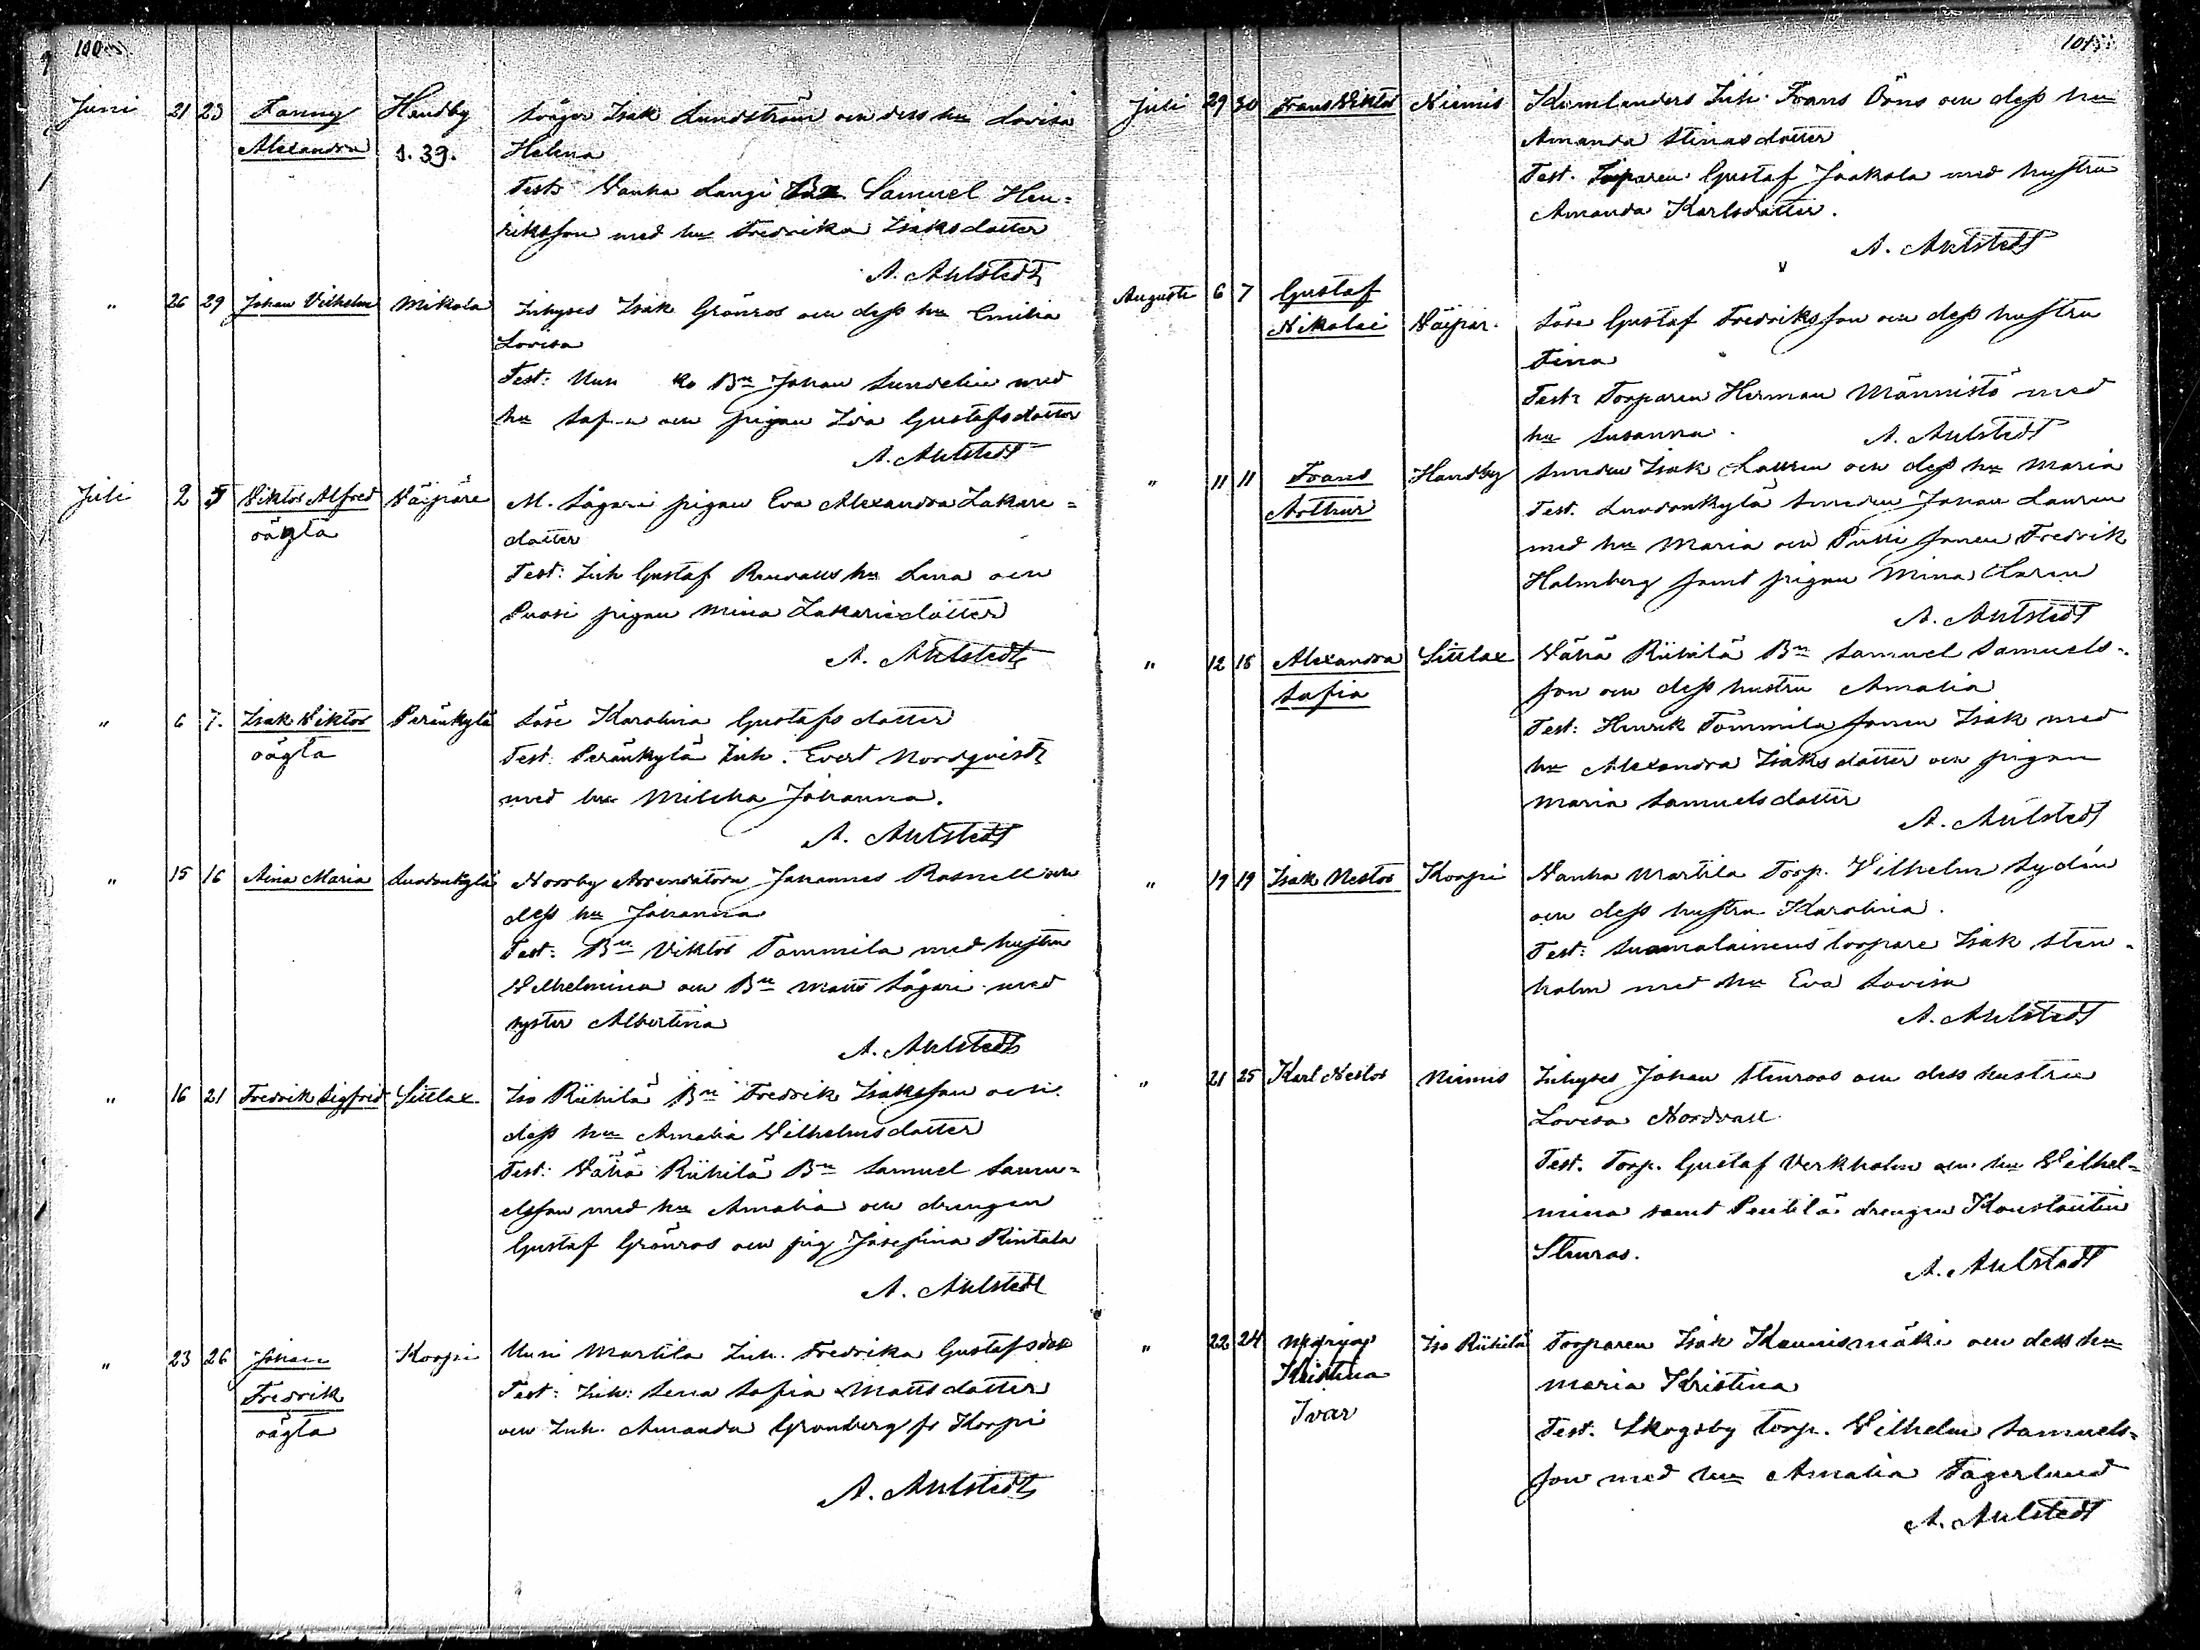 100
Juni 21 23 Fanny Handby Svåger Isak Lundström och dess hu Lovisa
Alexandra s. 39. Helena
Test: Vanha Langi Bn Samuel Hen=
riksson med hu Fredrika Isaksdotter
A. Ahlstedt
" 26 29 Johan Vilhelm Mikola Inhyses Isak Grönros och dess hu Emilia
Lovisa
Test: Bn Johan Sundelin med
hu och pigan Ida Gustafsdotter
A. Ahlstedt
Juli 2 5 Viktor Alfred Väipäre M. Sågari pigan Eva Alexandra Zakare=
oägta dotter
Test: Inh Gustaf hu Lena och
Puosi pigan Mina Zakariedotter
A. Ahlstedt
" 6 7. Isak Viktor Peränkylä Löse Karolina Gustafsdotter
oägta Test: Peränkylä Inh. Evert Nordqvist
med hu Milcha Johanna.
A. Ahlstedt
" 15 16 Aina Maria Luodonkylä Norrby Arrendatorn Johannes Rosnell och
dess hu Johanna
Test: Bn Viktor Tommila med hustru
Wilhelmina och Bn Matts Sågari med
syster Albertina
A. Ahlstedt
" 16 21 Fredrik Sigfrid Sittlax Iso Riihilä Bn Fredrik Isaksson och
dess hu Amalia Vilhelmsdotter
Test: Vähä Riihilä Bn Samuel Samu=
elsson med hu Amalia och drengen
Gustaf Grönros och pig Josefina Rintala
A. Ahlstedt
" 23 26 Johan Korpi Uusi Martila Inh. Fredrika Gustafsdot
Fredrik Test: Inh: Lena Sofia Mattsdotter
oägta och Inh. Amanda Grönberg fr Korpi
A. Ahlstedt
101
Juli 29 30 Frans Viktor Niemis Kumlanders Inh. Frans Öns och dess hu
Amanda Stinasdotter
Test. Torparen Gustaf Jaakola med hustru
Amanda Karlsdotter.
A. Ahlstedt
Augusti 6 7 Gustaf
" Nikolai Väipär. Löse Gustaf Fredriksson och dess hustru
Tina
Test: Torparen Herman Männistö med
hu Susanna. A. Ahlstedt
" 11 11 Frans Handby Smeden Isak Lauren och dess hu Maria
Arthur Test. Luodonkylä Smeden Johan Lauren
med hu Maria och sonen Fredrik
Holmberg samt pigan Mina Claren
A. Ahlstedt
" 12 18 Alexandra Sittlax Vähä Riihilä Bn Samuel Samuels-
Sofia son och dess hustru Amalia
Test: Henrik Tömmila sonen Isak med
hu Alexandra Isaksdotter och pigan
Maria Samuelsdotter
A. Ahlstedt
" 19 19 Isak Nestor Korpi Vanha Martila Torp. Vilhelm Sydén
och dess hustru Karolina.
Test: Suomalainens torpare Isak Sten-
holm med hu Eva Lovisa
A. Ahlstedt
" 21 25 Karl Nestor Niemis Inhyses Johan Stenroos och dess hustru
Lovisa Nordvall
Test. Torp. Gustaf Verkholm och hu Vilhel=
mina samt Pentilä drengen Konstantin
Stenros.
A. Ahlstedt
" 22 24 Iso Riihilä Torparen Isak Kaunismäki och dess hu
Kristina Maria Kristina
Ivar Test. Skogsby Torp. Vilhelm Samuels=
son med hu Amalia Fagerlund
A. Ahlstedt